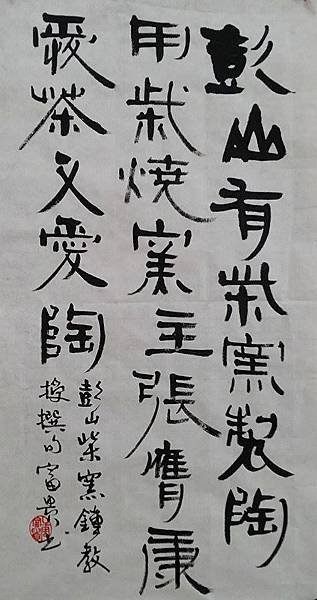 彭山有柴窯製陶
用柴燒窯主張膺康
愛茶又愛陶
彭山柴窯鍾教
授撰句富貴书